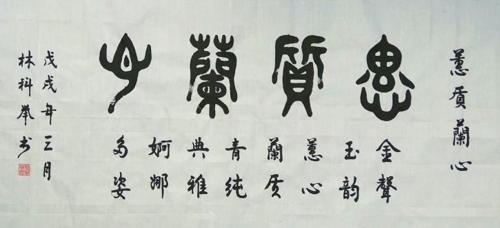 蕙质蘭心
惠質蘭心
金聲
玉韵
蕙心
蘭质
青纯
典雅
婀娜
多姿
戊戌年三月
林科书